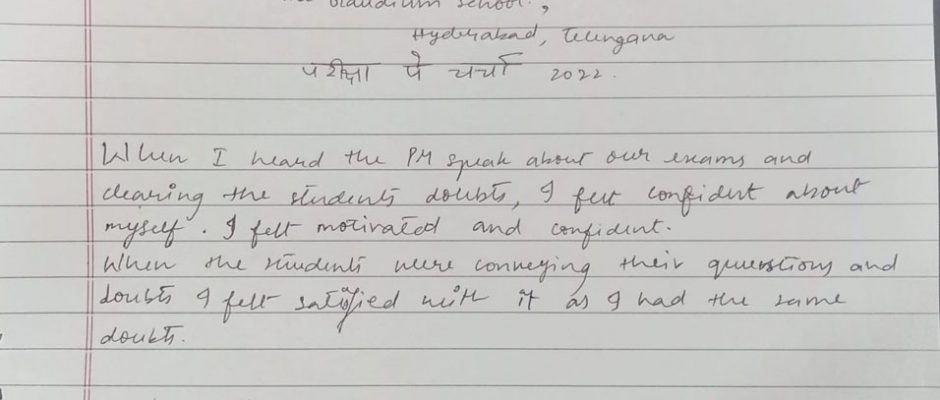 Glaudium School.,
Hyderabad, Telengana
परीक्षा पे चर्चा 2022.
When I heard the PM speak about our exams and
clearing the students doubts, I felt confident about
myself. I felt motivated and confident.
When the students were conveying their queustions and
doubts I felt satisfied with it as I had the same
doubts.